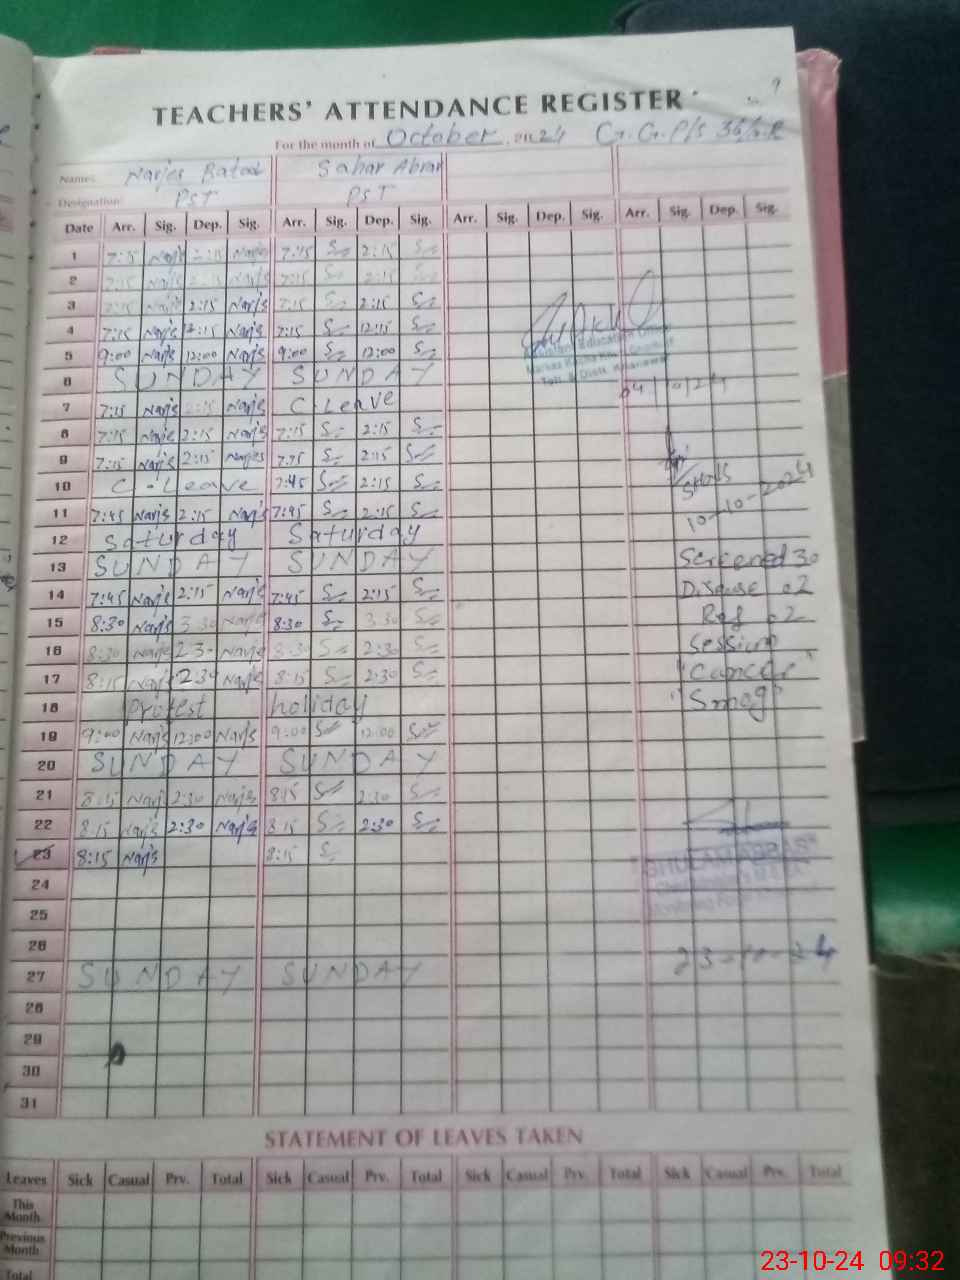 9
TEACHERS' ATTENDANCE REGISTER
For the month of October, 2024 G.G.P/S
Name: Narjes Batool Sahar Abrar
Designation: PST PST
Date Arr. Sig. Dep. Sig. Arr. Sig. Dep. Sig. Arr. Sig. Dep. Sig. Arr. Sig. Dep. Sig.
1 7:15 Narjis 2:15 Narjis 7:15 2:15
2 7:15 Narjis 2:15 Narjis 7:15 2:15
3 7:15 Narjis 2:15 Narjis 7:15 2:15
4 7:15 Narjis 12:15 Narjis 7:15 12:15
5 9:00 Narjis 12:00 Narjis 9:00 12:00
Assistant Education Officer
6 SUNDAY SUNDAY
Teh. & Distt. Khanewal
04/10/24
7 7:15 Narjis 2:15 Narjis C.Leave
8 7:15 Narjis 2:15 Narjis 7:15 2:15
9 7:15 Narjis 2:15 Narjes 7:15 2:15
10 C.Leave 7:45 2:15
SH&NS
10-10-2024
11 7:45 Narjis 2:15 Narjis 7:45 2:15
12 Saturday Saturday
13 SUNDAY SUNDAY Screened 30
14 7:45 Narjis 2:15 Narjis 7:45 2:15 Disease 02
15 8:30 Narjis 3:30 Narjis 8:30 3:30 Ref 02
16 8:30 Narjis 23- Narjis 8:30 2:30 Session
17 8:15 Narjis 2:30 Narjis 8:15 2:30 "Cancer"
18 Protest holiday "Smog"
19 9:00 Narjis 12:00 Narjis 9:00 12:00
20 SUNDAY SUNDAY
21 8:15 Narj 2:30 Narjis 8:15 2:30
22 8:15 Narjis 2:30 Narjis 8:15 2:30
23 8:15 Narjis 8:15
GHULAM ABBAS
24
25
26
23-10-24
27 SUNDAY SUNDAY
28
29
30
31
STATEMENT OF LEAVES TAKEN
Leaves Sick Casual Prv. Total Sick Casual Prv. Total Sick Casual Prv. Total Sick Casual Prv. Total
This
Month
Previous
Month
Total
23-10-24 09:32